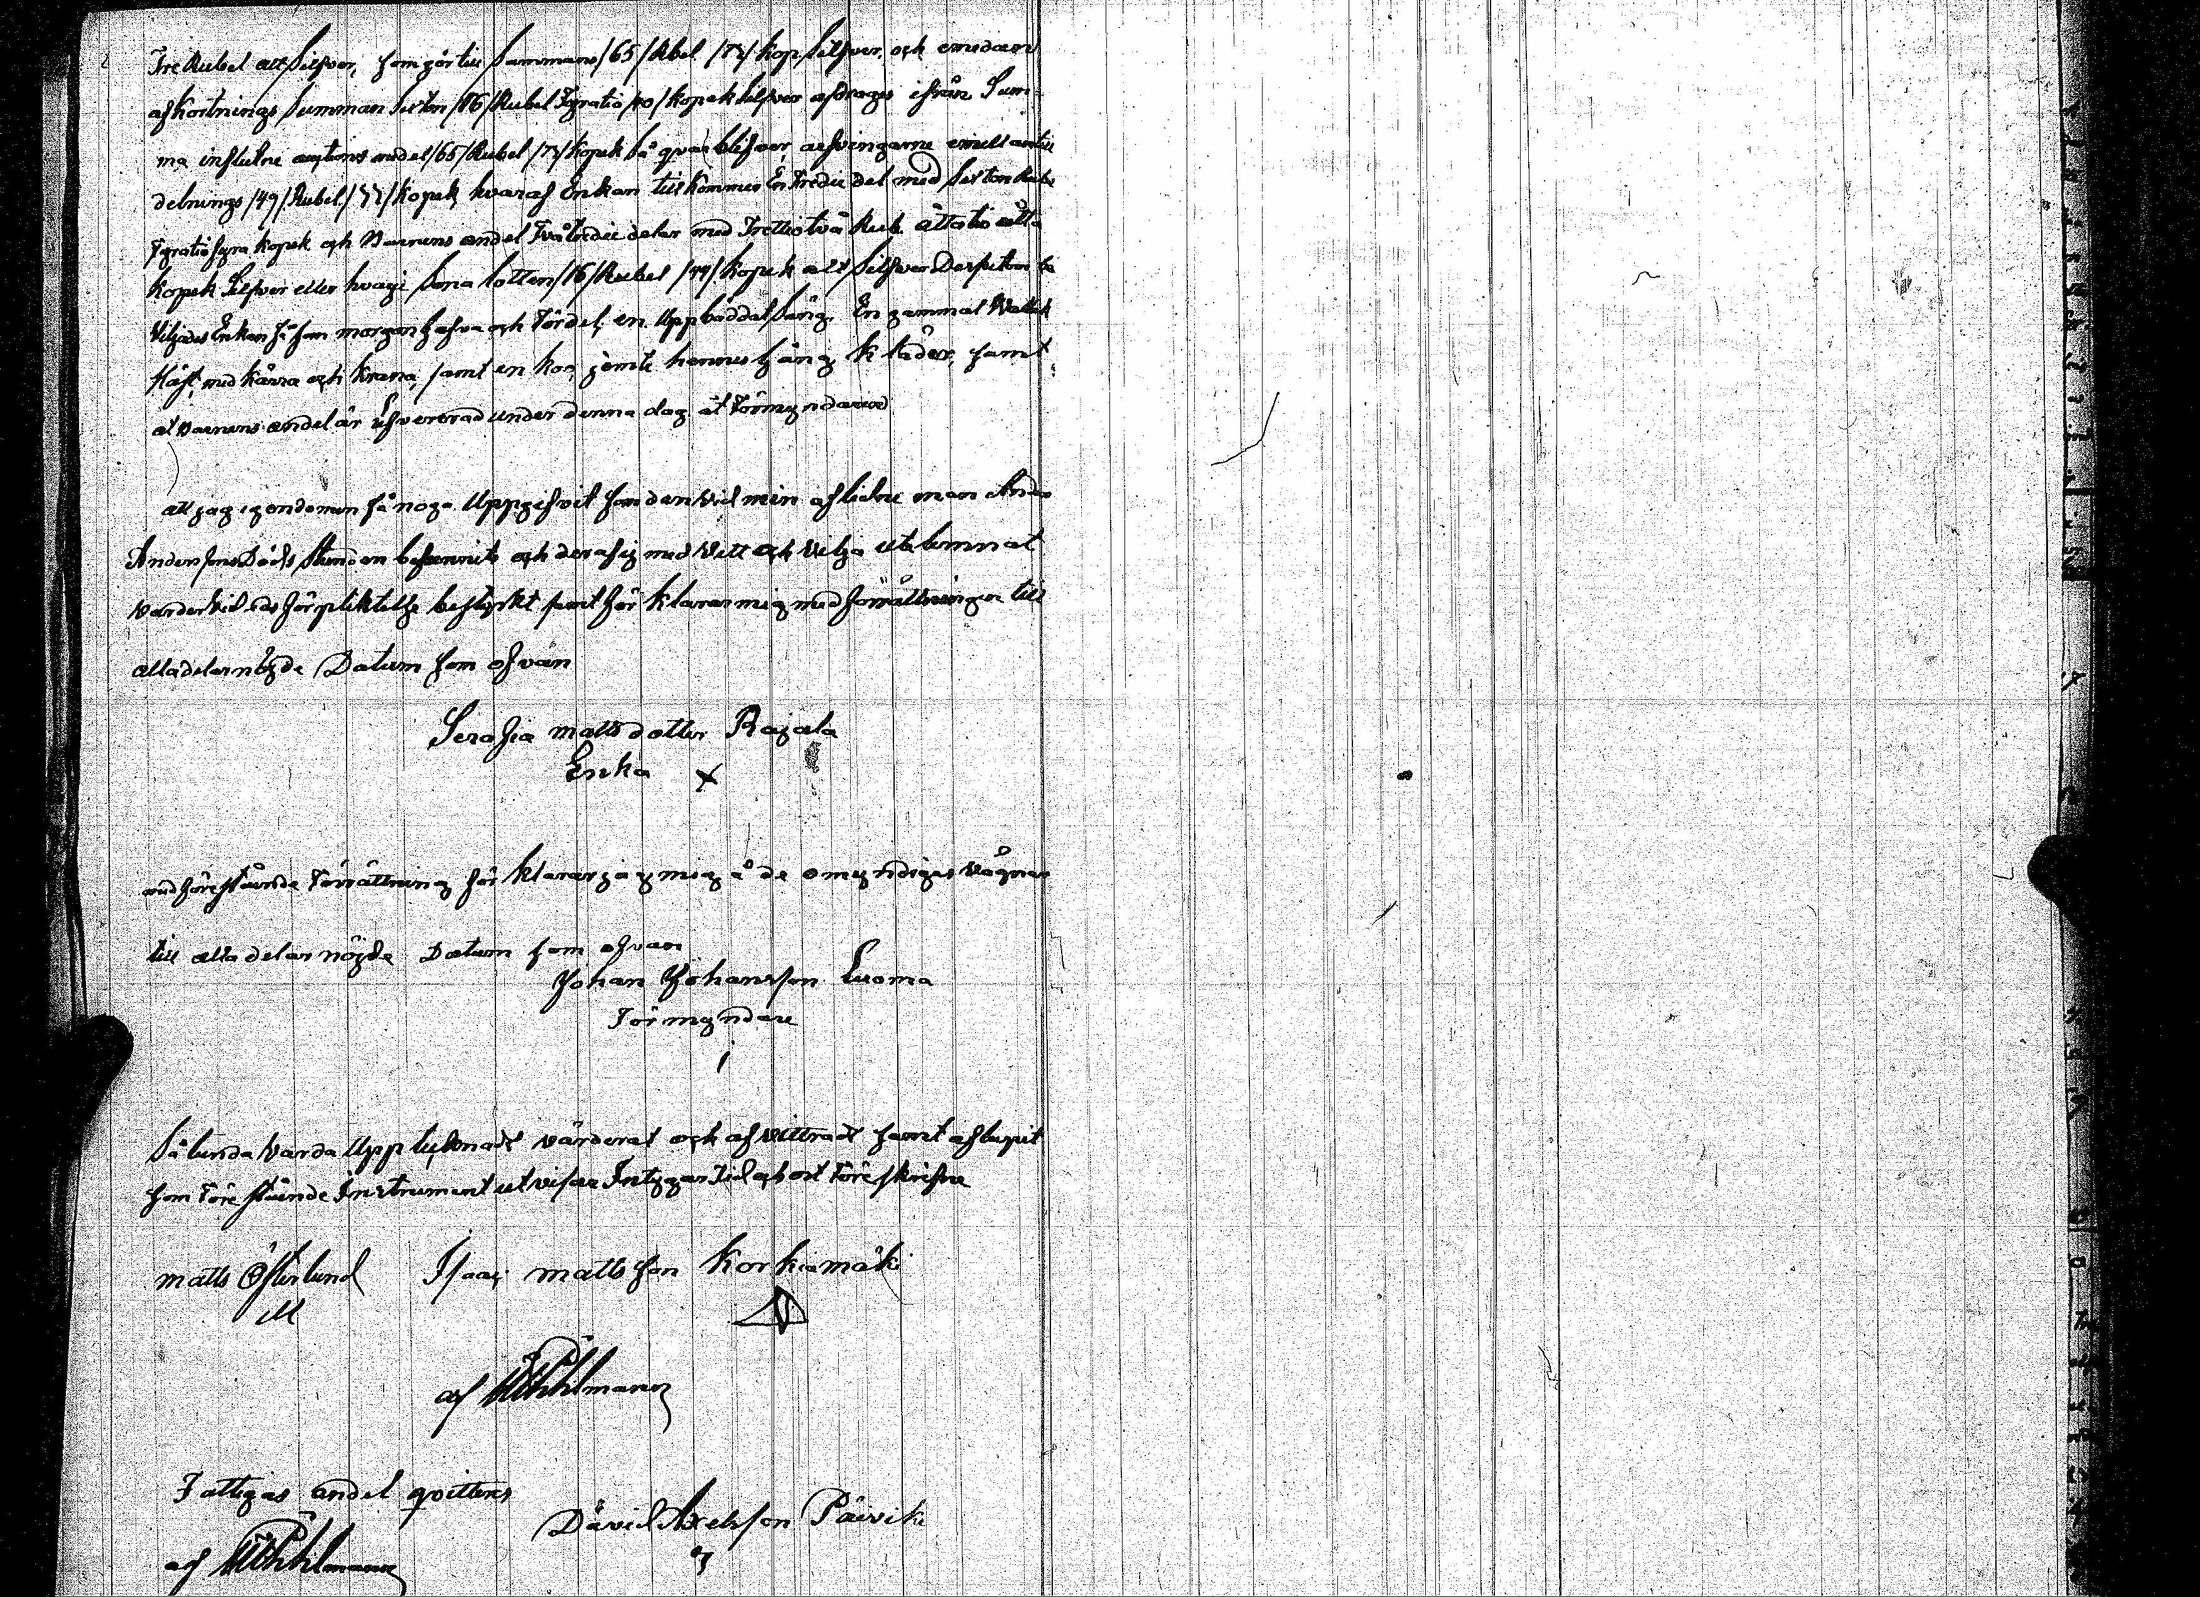 Tre Rubel allt Silfver, som gör till Sammans /65/ Rbel /72/ kop. Silfver, och emedan
afkortnings Summan Sexton /16/ Rubel Fyratio /40/ kopek Silfver afdrages ifrån Sum-
ma influtne auctions medel /65/ Rubel /72/ kopek så qvarblifver arfvingarne emellan till
delnings /49/ Rubel / kopek hvaraf Enkan tillkommer En Tredie del med Sexton Rube
Fyratiofyra kopek och Barnens andel Två tredie delar med Trettio två Rub. åttatio åtta
kopek Silfver eller hvarje Sona lotten /16/ Rubel /44/ kopek allt Silfver Dessutom be
Viljades Enkan få som morgongåfva och Fördel, en Uppbäddat Säng. En gammal Wallak
Häst, med kärra och krana, samt en ko, jemte hennes gång kläder, samt
at Barnens andel är Lefvererad under denna dag åt Förmyndaren
att jag egendomen så noga Uppgifvit som den vid min aflidne man Anders
Anderssons Döds Stunden befunnits och deraf ej med Vett och Vilja utelemnat
varder vid eds förpliktelse bestyrkt samt förklarar mig med förrättningen till
alla delar nögde Datum som ofvan
Serafia matts dotter Rajala
Enka x
med föreståunde Förrättning för klarar jag mig å de omyndigas vägnar
till alla delar nöjde Datum som ofvan
Johan Johansson Luoma
Förmyndare
Så lunda varda Upptecknadt värderat och afvittradt samt aflupit
som Före stående Instrument utvisar Intygar Tid och ort Föreskrefne
matts Österlund Isaac matts son Korkiamäki
M
af
Fattigas andel qvitteras
David Axelsson Päivike
af